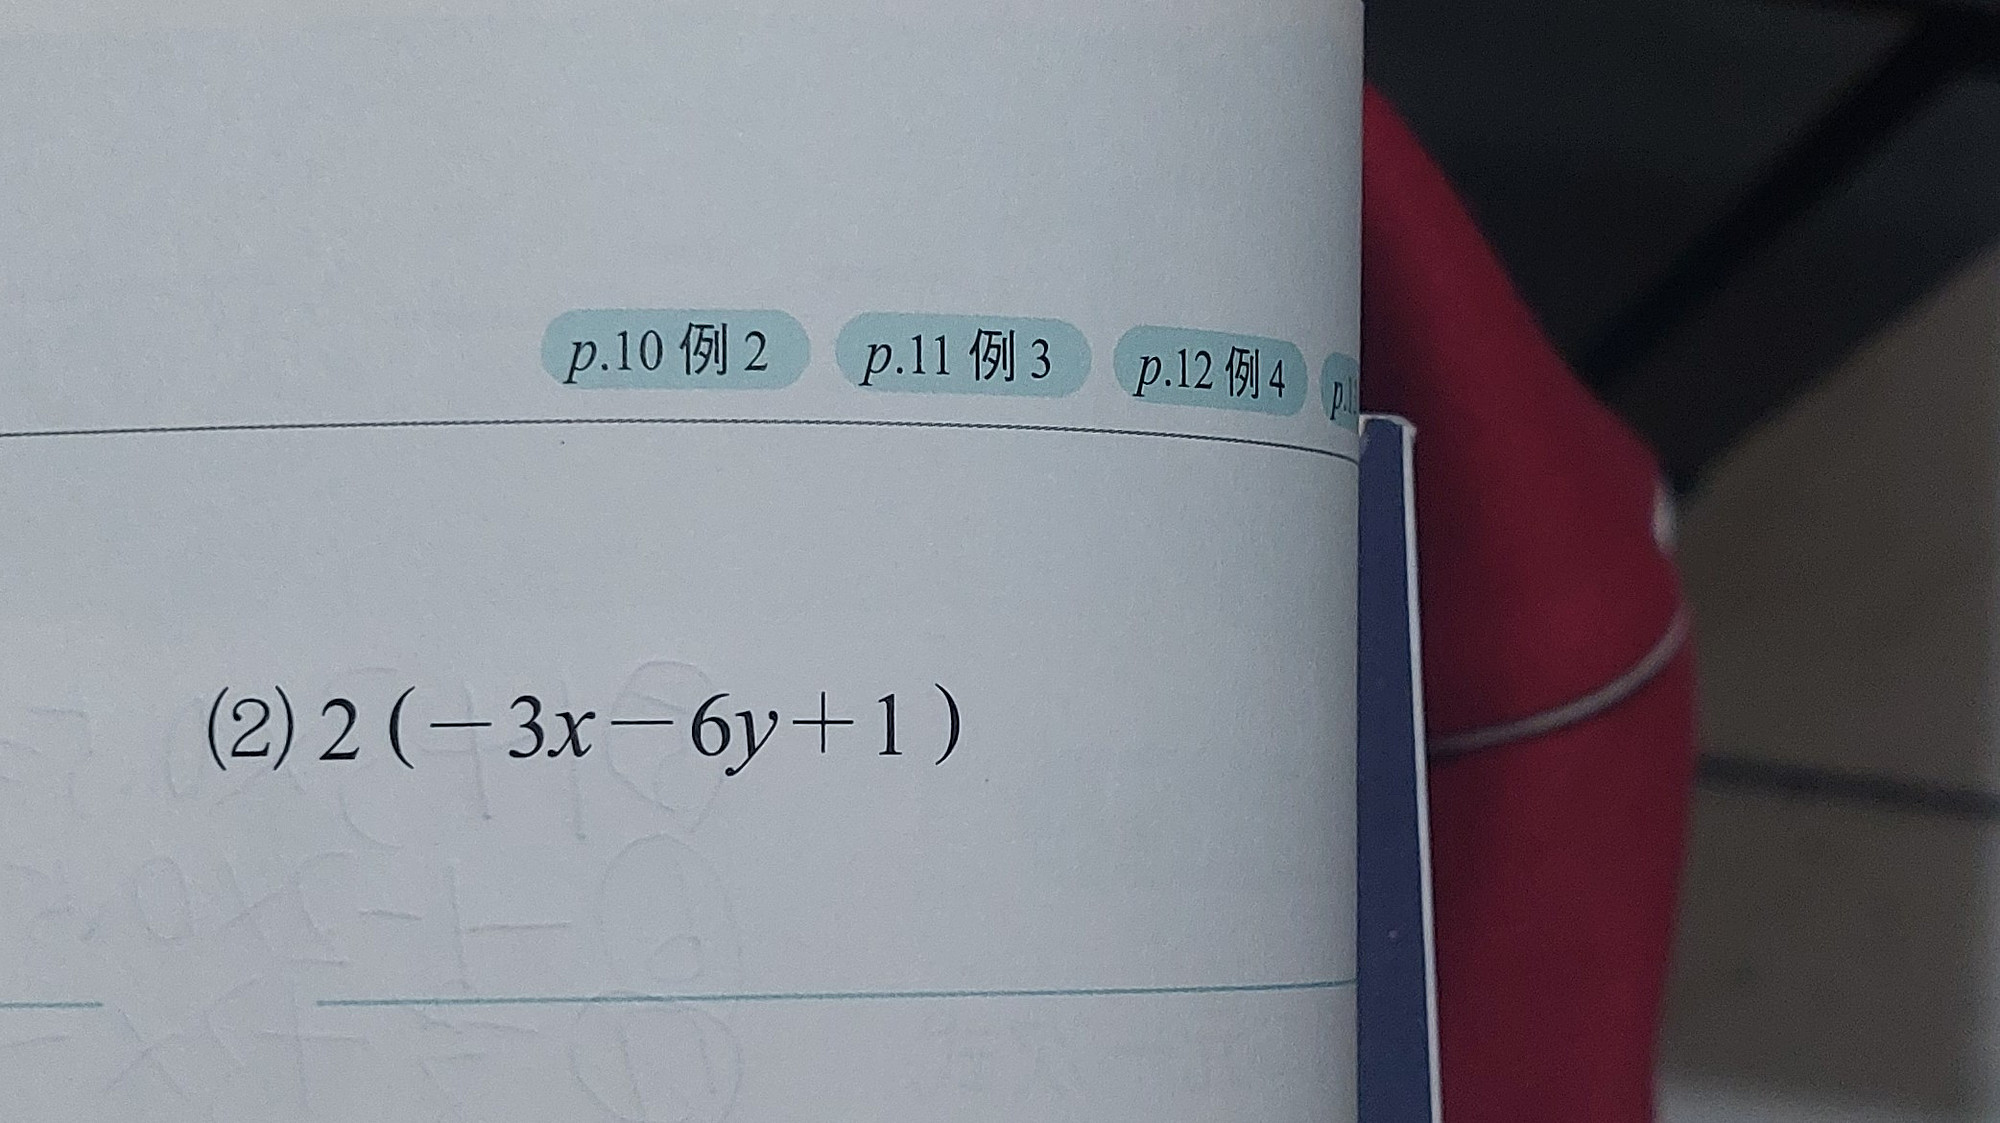 p.10 例 2 p.11 例 3 p.12 例 4
(2) 2 (−3x−6y+1)